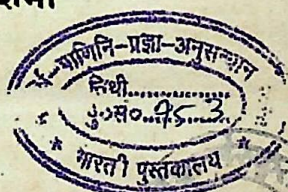 पाणिनि-प्रज्ञा-अनुसन्धान
तिथी..............
पु०सं०..........
भारती पुस्तकालय